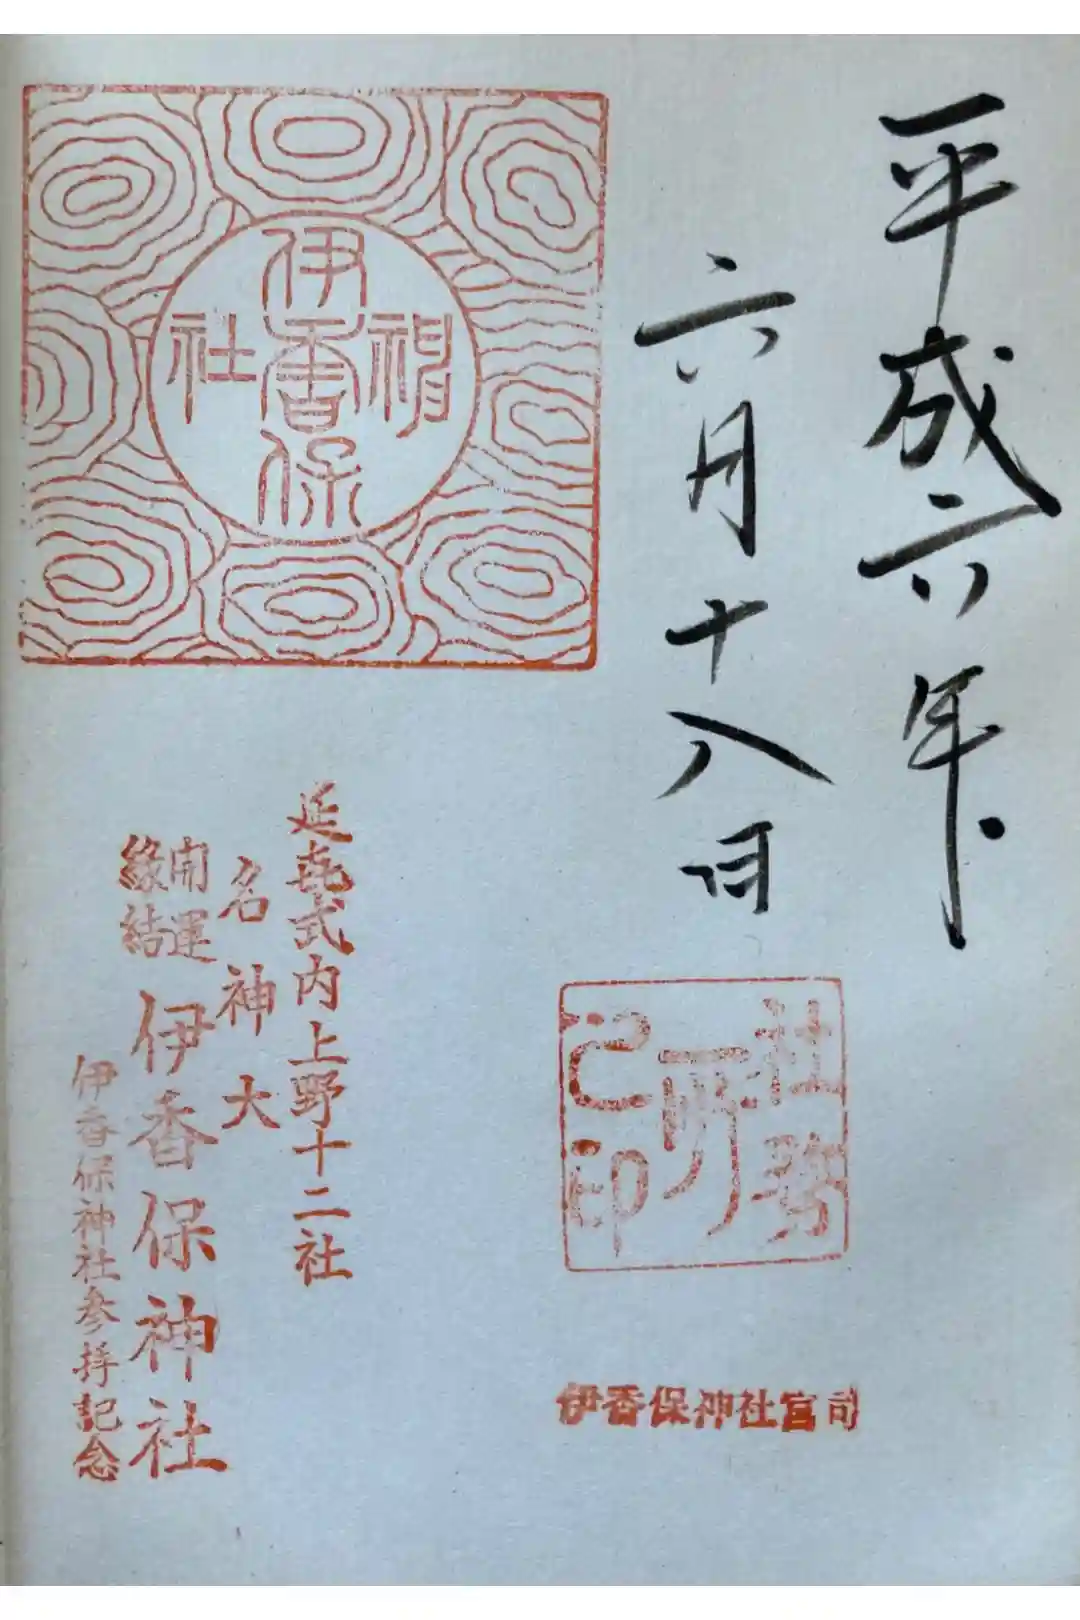 平成六年
六月十八日
伊香保
神社
社務所之印
伊香保神社宮司
延喜式内上野十二社
名神大
開運
縁結
伊香保神社
伊香保神社参拝記念